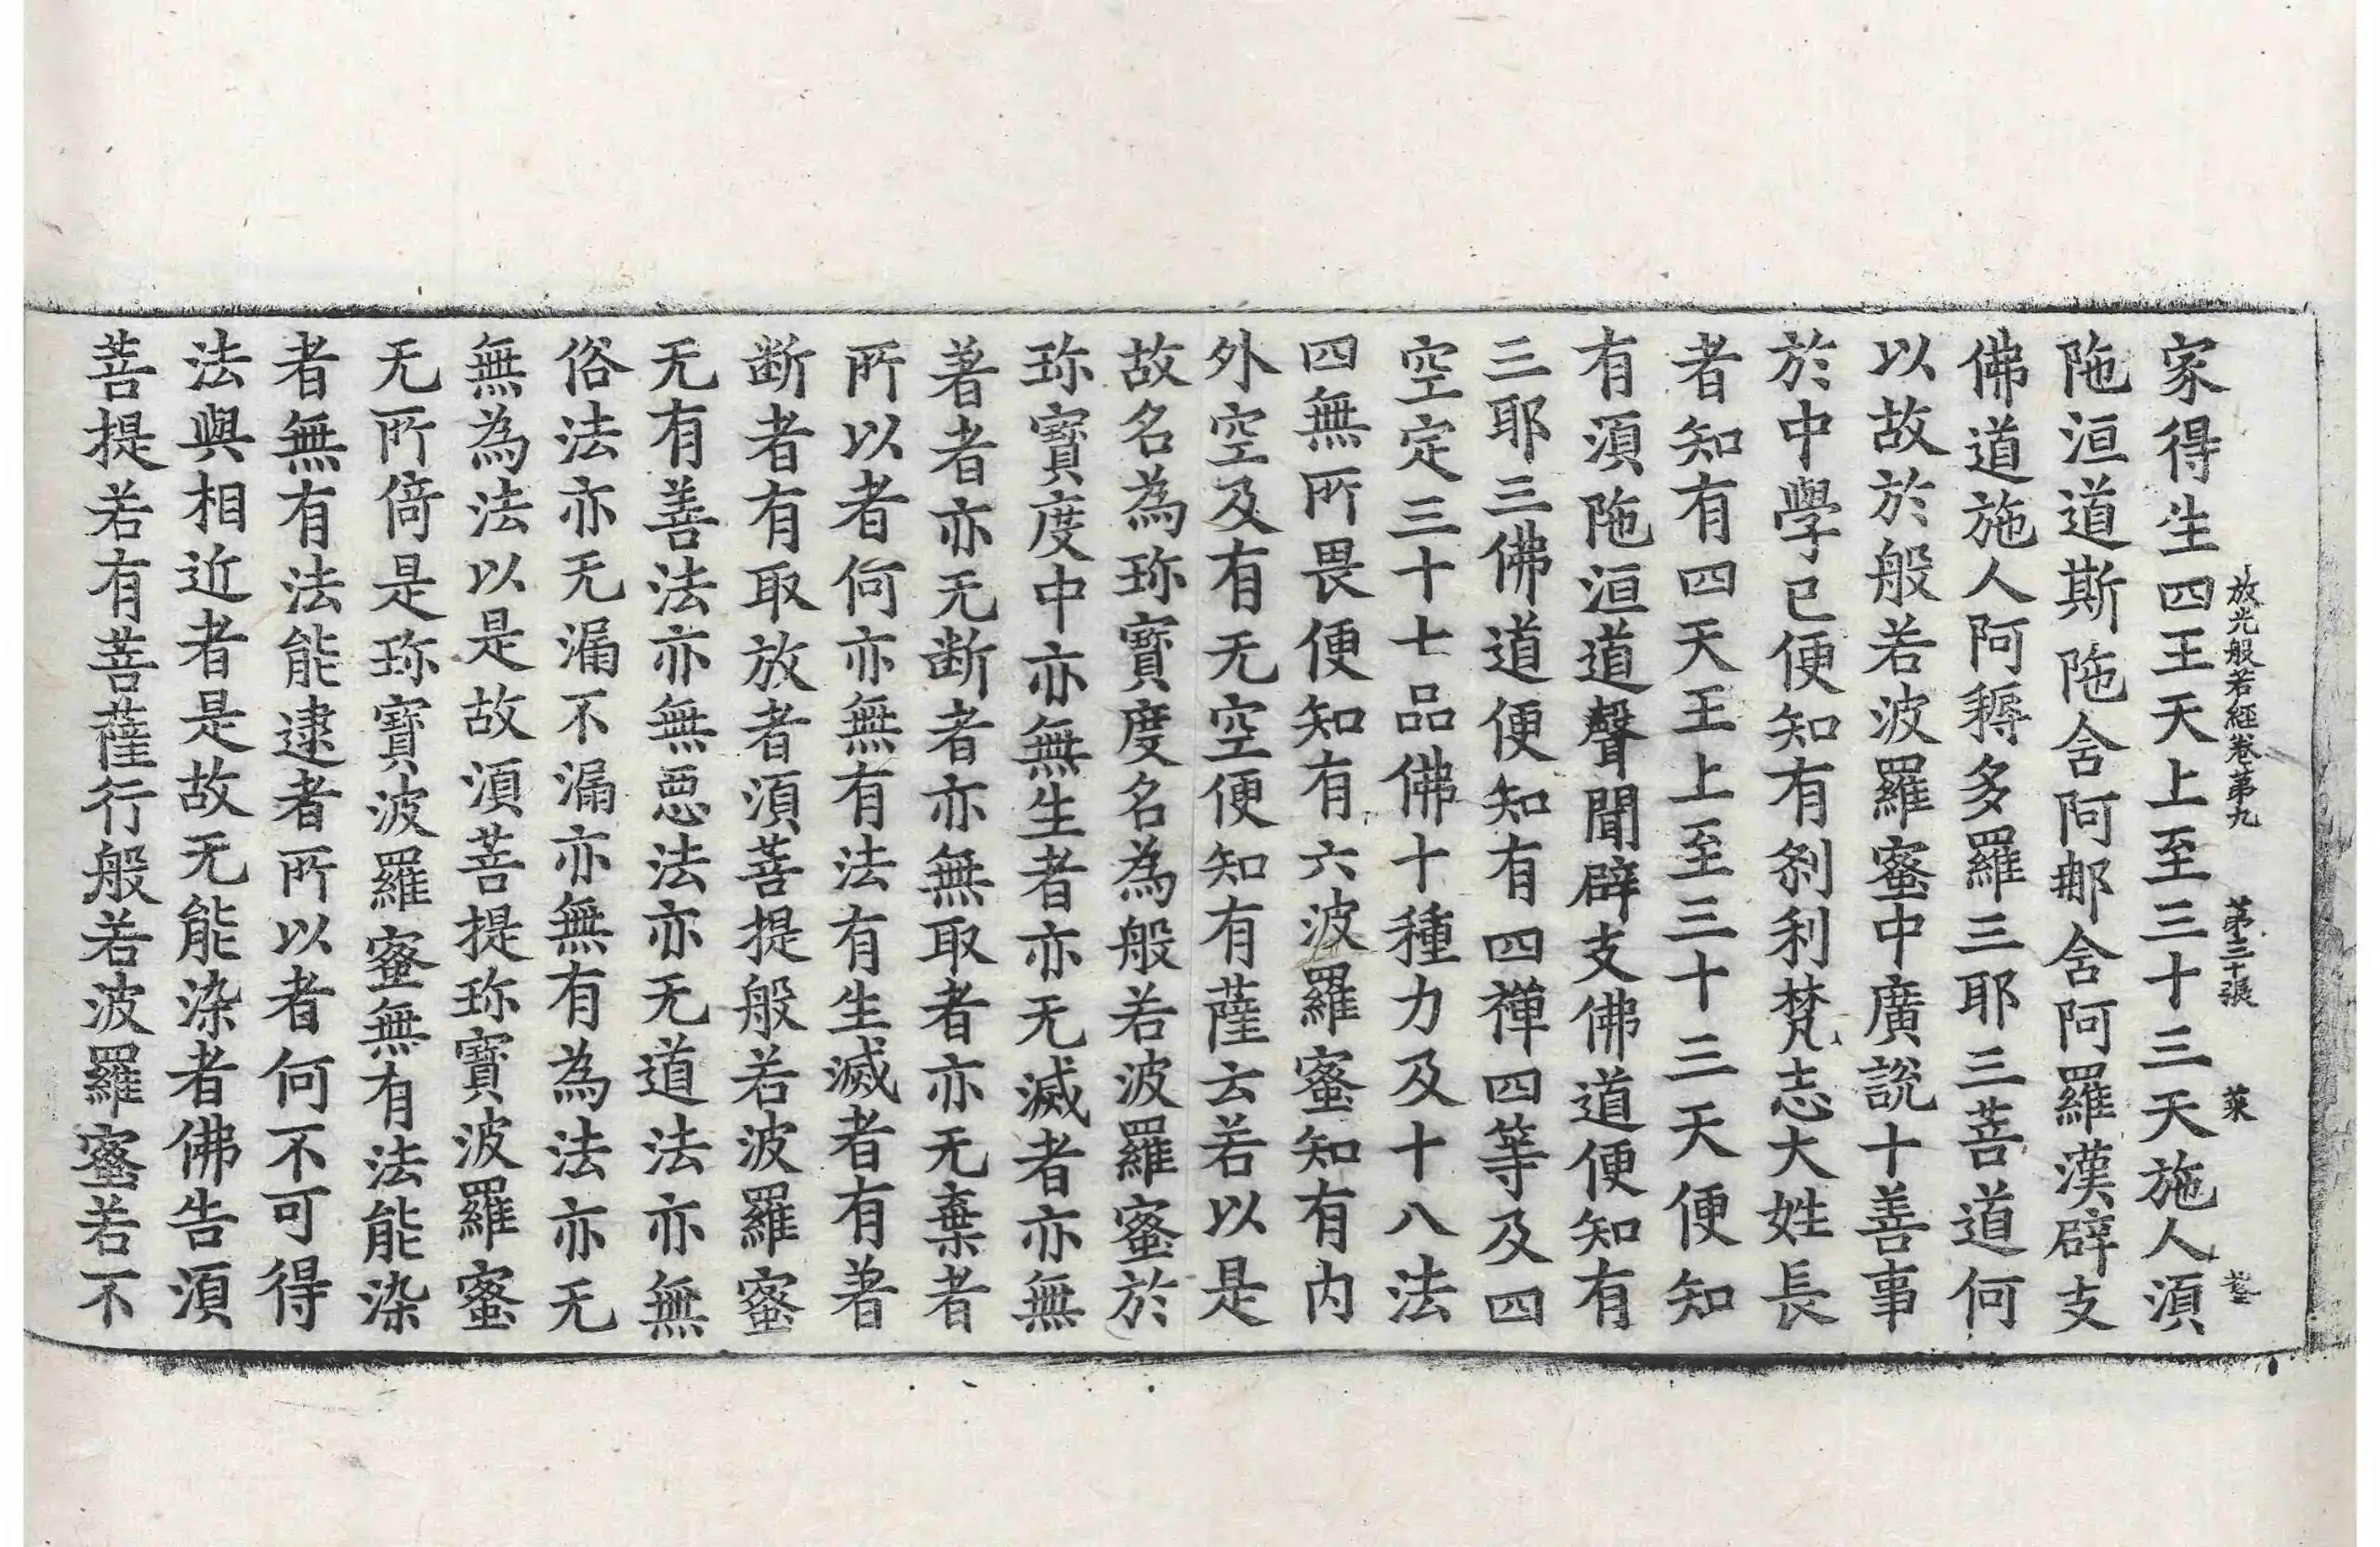 放光般若經卷第九 第三十張 菜
家得生四王天上至三十三天施人湏
陁洹道斯陁含阿𨚗含阿羅漢辟支
佛道施人阿耨多羅三耶三菩道何
以故於般若波羅蜜中廣說十善事
於中學已便知有刹利梵志大姓長
者知有四天王上至三十三天便知
有湏陁洹道聲聞辟支佛道便知有
三耶三佛道便知有四禪四等及四
空定三十七品佛十種力及十八法
四無所畏便知有六波羅蜜知有内
外空及有无空便知有薩云若以是
故名為珎寶度名為般若波羅蜜於
珎寶度中亦無生者亦无滅者亦無
著者亦无断者亦無取者亦无棄者
所以者何亦無有法有生滅者有著
断者有取放者湏菩提般若波羅蜜
无有善法亦無惡法亦无道法亦無
俗法亦无漏不漏亦無有為法亦无
無為法以是故湏菩提珎寶波羅蜜
无所倚是珎寶波羅蜜無有法能染
者無有法能逮者所以者何不可得
法與相近者是故无能染者佛告湏
菩提若有菩薩行般若波羅蜜若不